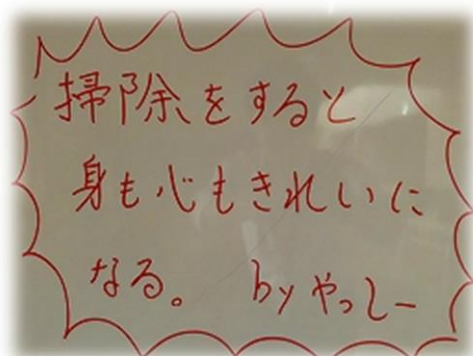 掃除をすると
身も心もきれいに
なる。 by やっしー